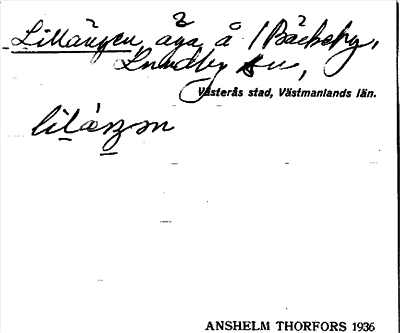 Lillängen, äga å 1 Bäckeby,
Lundby sn,
Västerås stad, Västmanlands län.
lilàŋən
ANSHELM THORFORS 1936